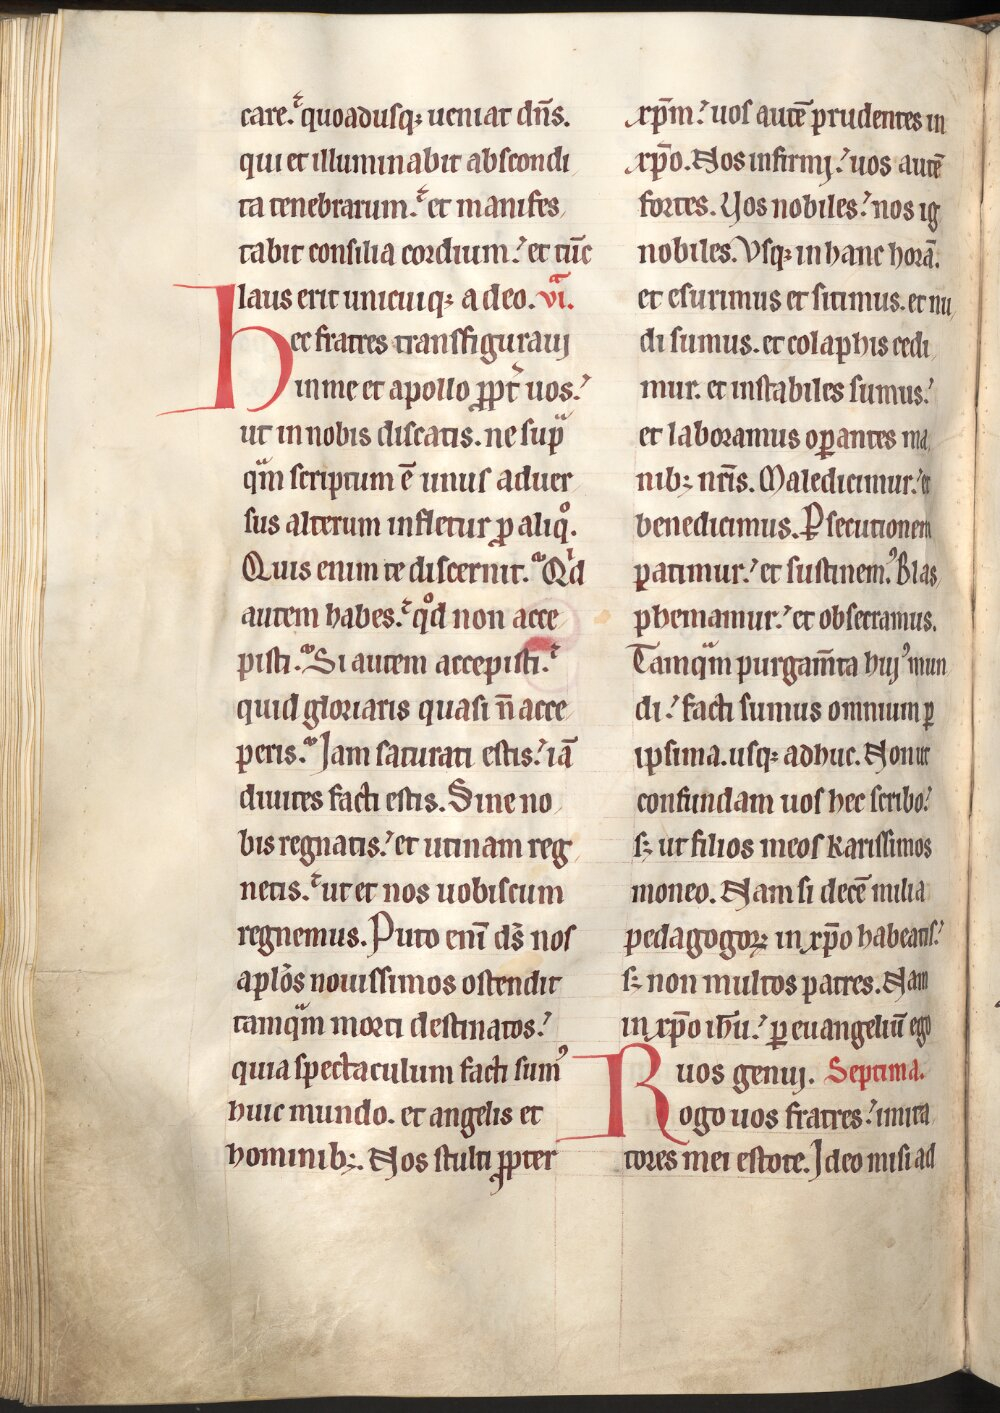 care. quoadusq; ueniat dn̄s.
qui et illuminabit abscondi
ta tenebrarum. et manifes
tabit consilia cordium. et tūc
laus erit unicuiq; a deo. vı̄.
hec fratres transfiguraui
in me et apollo ꝓpt̄ uos.
ut in nobis discatis. ne sup̄
qͣm scriptum ē unus aduer
sus alterum infletur ꝓ aliqͦ.
Quis enim te discernit. Qͥd
autem habes. qͦd non acce
pisti. Si autem accepisti.
quid gloriaris quasi n̄ acce
peris. Jam saturati estis. iā
diuites facti estis. Sine no
bis regnatis. et utinam reg
netis. ut et nos uobiscum
regnemus. Puto enī ds̄ nos
apl̄os nouissimos ostendit
tamqͣm morti destinatos.
quia spectaculum facti sumꝰ
huic mundo. et angelis et
hominib;. Nos stulti ꝓpter
xp̄m. uos autē prudentes in
xp̄o. Nos infirmi. uos autē
fortes. Vos nobiles. nos ig
nobiles. Vsq; in hanc horā.
et esurimus et sitimus. et nu
di sumus. et colaphis cedi
mur. et instabiles sumus.
et laboramus oꝑantes ma
nib; nr̄is. Maledicimur. et
benedicimus. Ꝑsecutionem
patimur. et sustinemꝰ. Blas
phemamur. et obsecramus.
Tamqͣm purgam̄ta huiꝰ mun
di. facti sumus omnium ꝑ
ipsima. usq; adhuc. Non ut
confundam uos hec scribo.
s; ut filios meos karissimos
moneo. Nam si decē milia
pedagogoꝝ in xp̄o habeatis.
s; non multos patres. Nam
in xp̄o ih̄u. ꝑ euangeliū ego
uos genui. Septima.
Rogo uos fratres. imita
tores mei estote. Jdeo misi ad